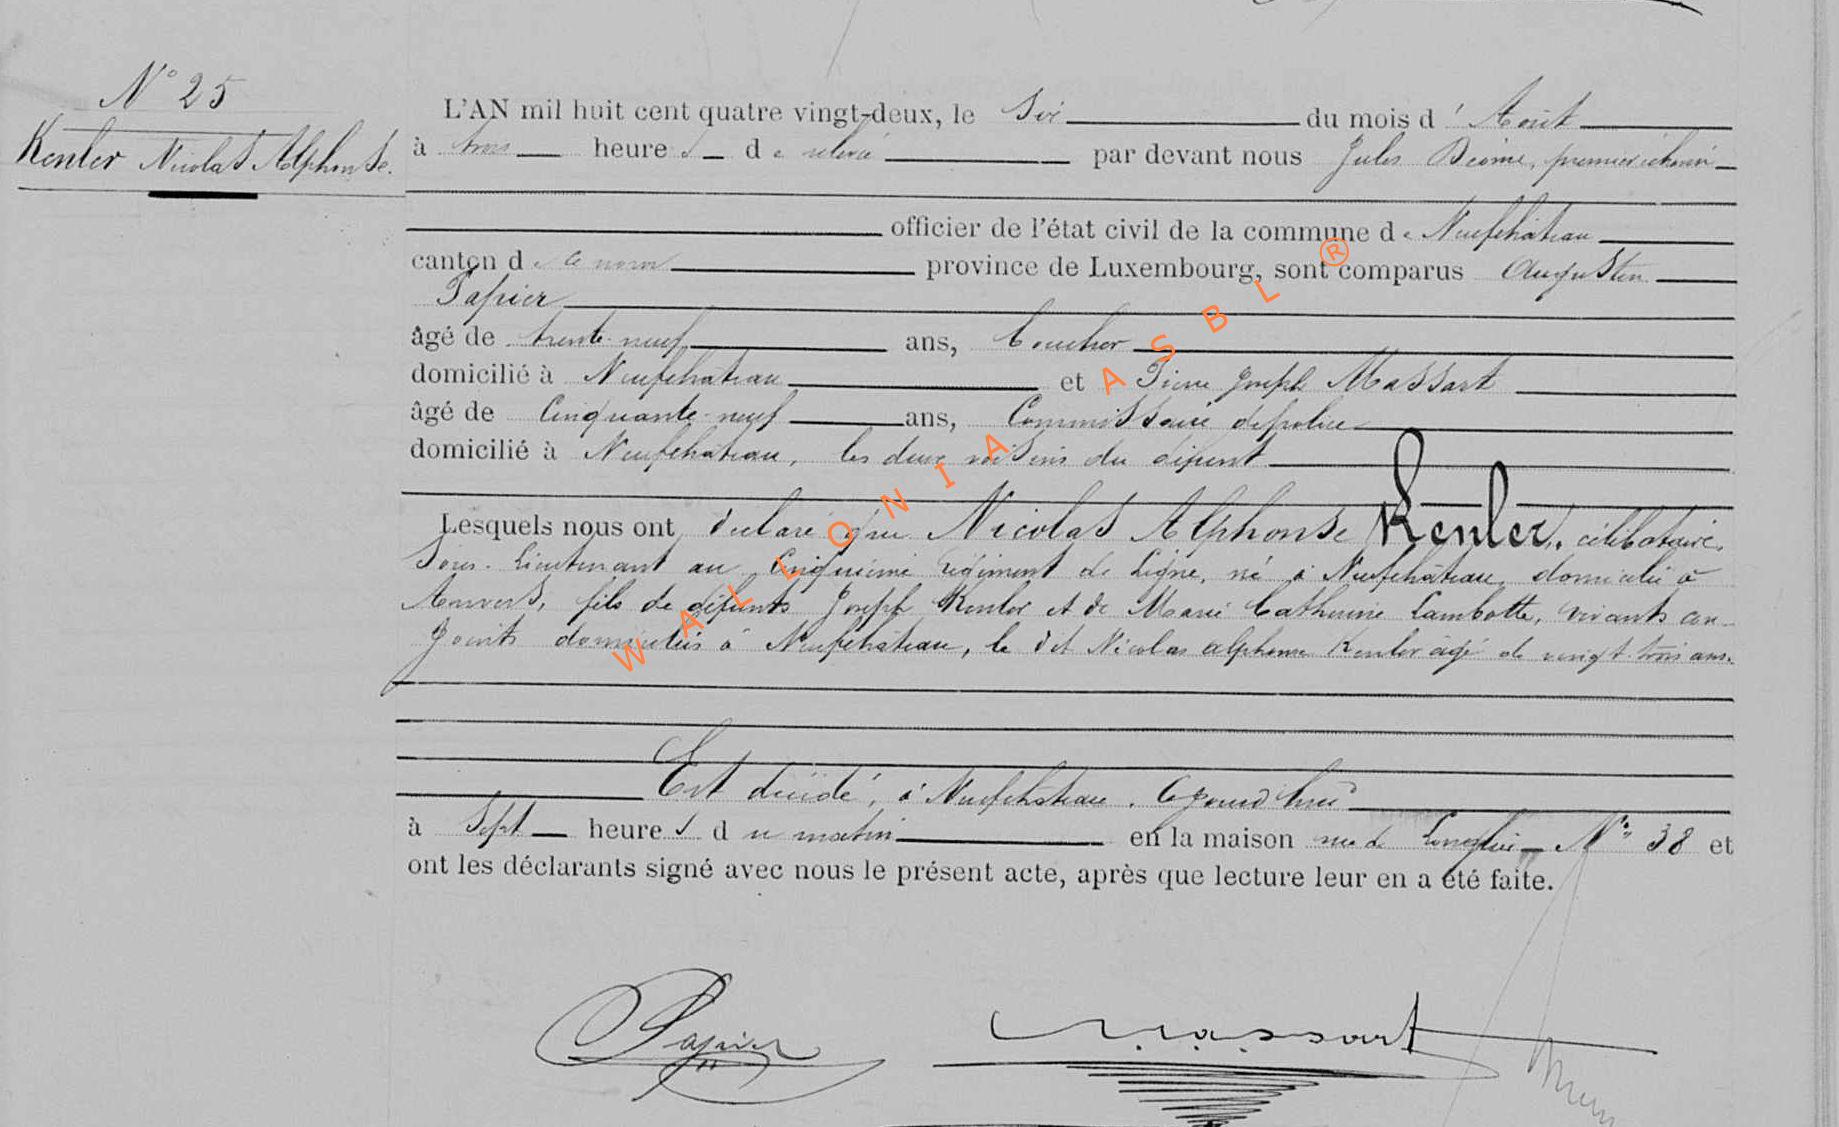 N° 25
Kenler Nicolas Alphonse.
L'AN mil huit cent quatre vingt-deux, le Six du mois d' Août
à trois heure s de relevée par devant nous Jules premier échevin
officier de l'état civil de la commune de Neufchâteau
canton de ce nom province de Luxembourg, sont comparus Augustin
Papier
âgé de trente-neuf ans, boucher
domicilié à Neufchateau et Pierre Joseph Massart
âgé de Cinquante-neuf ans, Commissaire de police
domicilié à Neufchâteau, les deux voisins du défunt
Lesquels nous ont déclaré que Nicolas Alphonse Kenler, célibataire,
Sous-Lieutenant au Cinquième régiment de Ligne, né à Neufchâteau, domicilié à
Anvers, fils de défunts Joseph Kenler et de Marie Catherine Lambotte, vivants con-
joints domiciliés à Neufchateau, le dit Nicolas alphonse Kenler âgé de vingt trois ans.
Est décédé, à Neufchateau, ce jourd'hui
à Sept heure s du matin en la maison rue de Longlier N° 38 et
ont les déclarants signé avec nous le présent acte, après que lecture leur en a été faite.
Papier Massart
WALLONIA ASBL ®